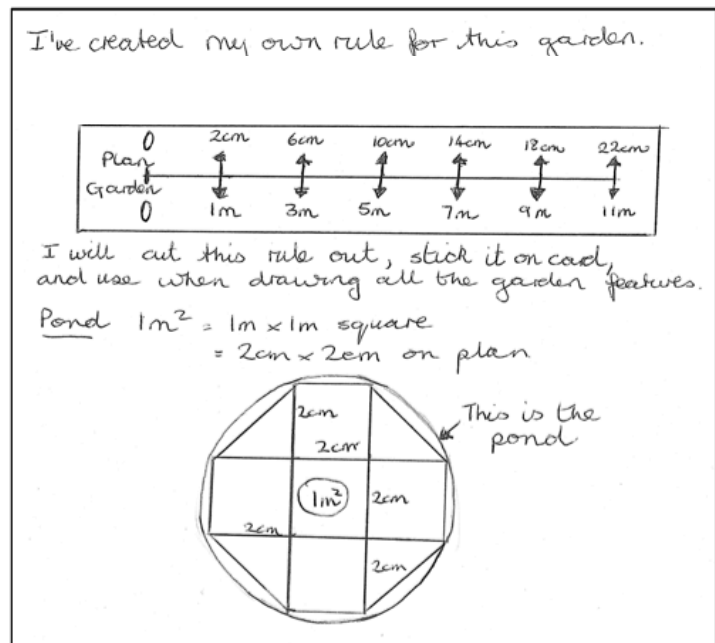 I've created my own rule for this garden.
0 2cm 6cm 10cm 14cm 18cm 22cm
Plan
Garden
0 1m 3m 5m 7m 9m 11m
I will cut this rule out, stick it on card,
and use when drawing all the garden features.
Pond 1m² = 1m × 1m square
= 2cm × 2cm on plan
2cm
2cm
This is the
pond
1m²
2cm
2cm
2cm